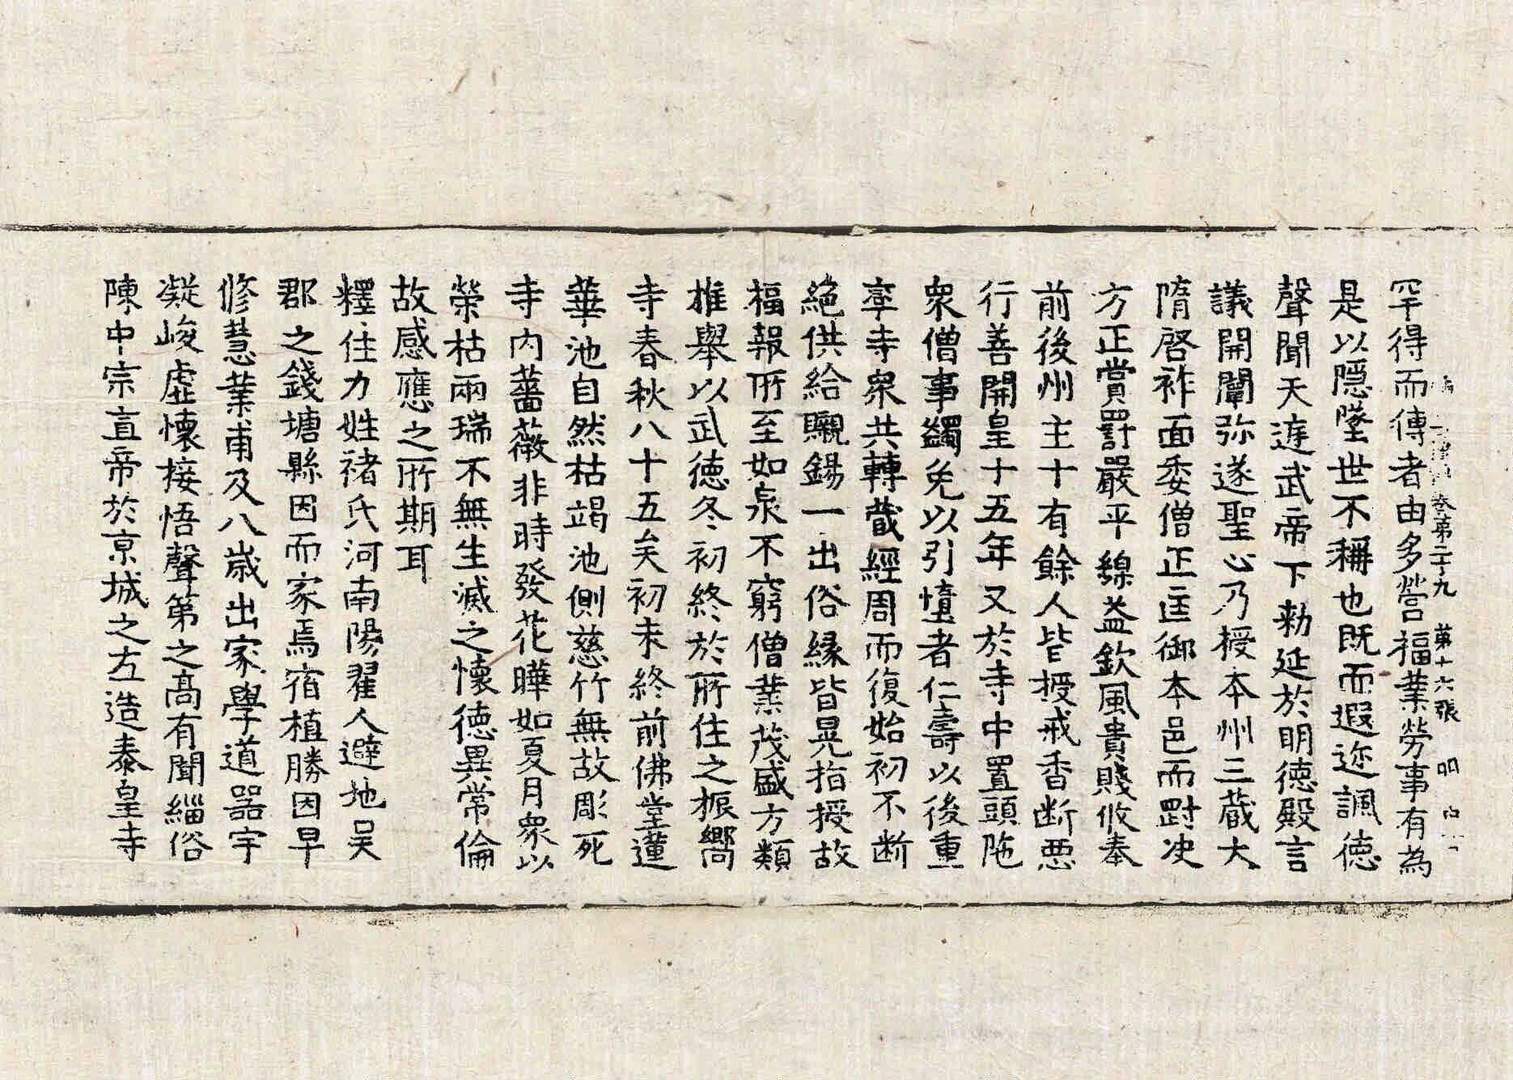 卷第二十九 第十六張
罕得而傳者由多營福業勞事有為
是以隱墜世不稱也既而遐迩諷德
聲聞天庭武帝下勑延於明德殿言
議開闡弥遂聖心乃授本州三藏大
隋啓祚面委僧正匡御本邑而剛决
方正賞罰嚴平綠益欽風貴賤攸奉
前後州主十有餘人皆授戒香断惡
行善開皇十五年又於寺中置頭陁
衆僧事蠲免以引憧者仁壽以後重
率寺衆共轉藏經周而復始初不断
絕供給䞋錫一出俗緣皆晃指授故
福報所至如泉不窮僧業茂盛方類
推舉以武德冬初終於所住之振嚮
寺春秋八十五矣初未終前佛堂蓮
華池自然枯竭池側慈竹無故彫死
寺內薔薇非時發花曄如夏月衆以
榮枯兩瑞不無生滅之懷德異常倫
故感應之所期耳
釋住力姓褚氏河南陽翟人避地吴
郡之錢塘縣因而家焉宿植勝因早
修慧業甫及八歲出家學道器宇
凝峻虛懷接悟聲第之高有聞緇俗
陳中宗宣帝於京城之左造泰皇寺